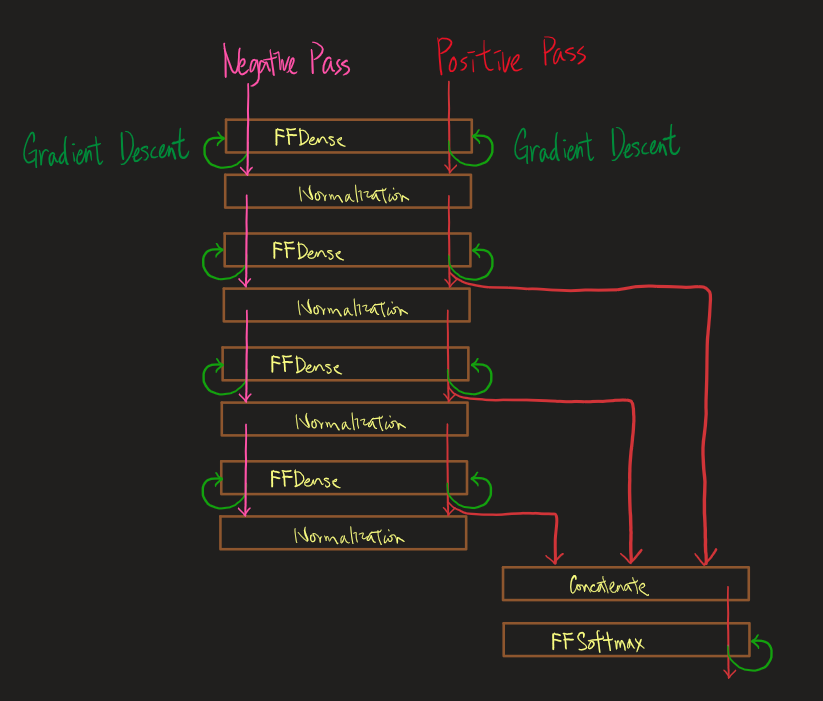 Negative Pass
Positive Pass
Gradient Descent
FFDense
Gradient Descent
Normalization
FFDense
Normalization
FFDense
Normalization
FFDense
Normalization
Concatenate
FFSoftmax